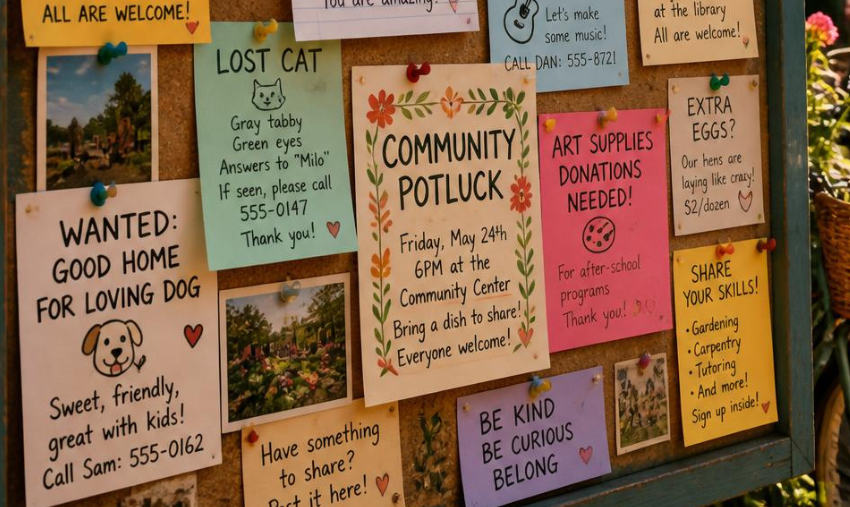 ALL ARE WELCOME!
You are amazing!
Let's make
some music!
CALL DAN: 555-8721
at the library
All are welcome!
LOST CAT
Gray tabby
Green eyes
Answers to "Milo"
If seen, please call
555-0147
Thank you!
COMMUNITY
POTLUCK
Friday, May 24th
6PM at the
Community Center
Bring a dish to share!
Everyone welcome!
ART SUPPLIES
DONATIONS
NEEDED!
For after-school
programs
Thank you!
EXTRA
EGGS?
Our hens are
laying like crazy!
$2/dozen
WANTED:
GOOD HOME
FOR LOVING DOG
Sweet, friendly,
great with kids!
Call Sam: 555-0162
SHARE
YOUR SKILLS!
• Gardening
• Carpentry
• Tutoring
• And more!
Sign up inside!
Have something
to share?
Post it here!
BE KIND
BE CURIOUS
BELONG